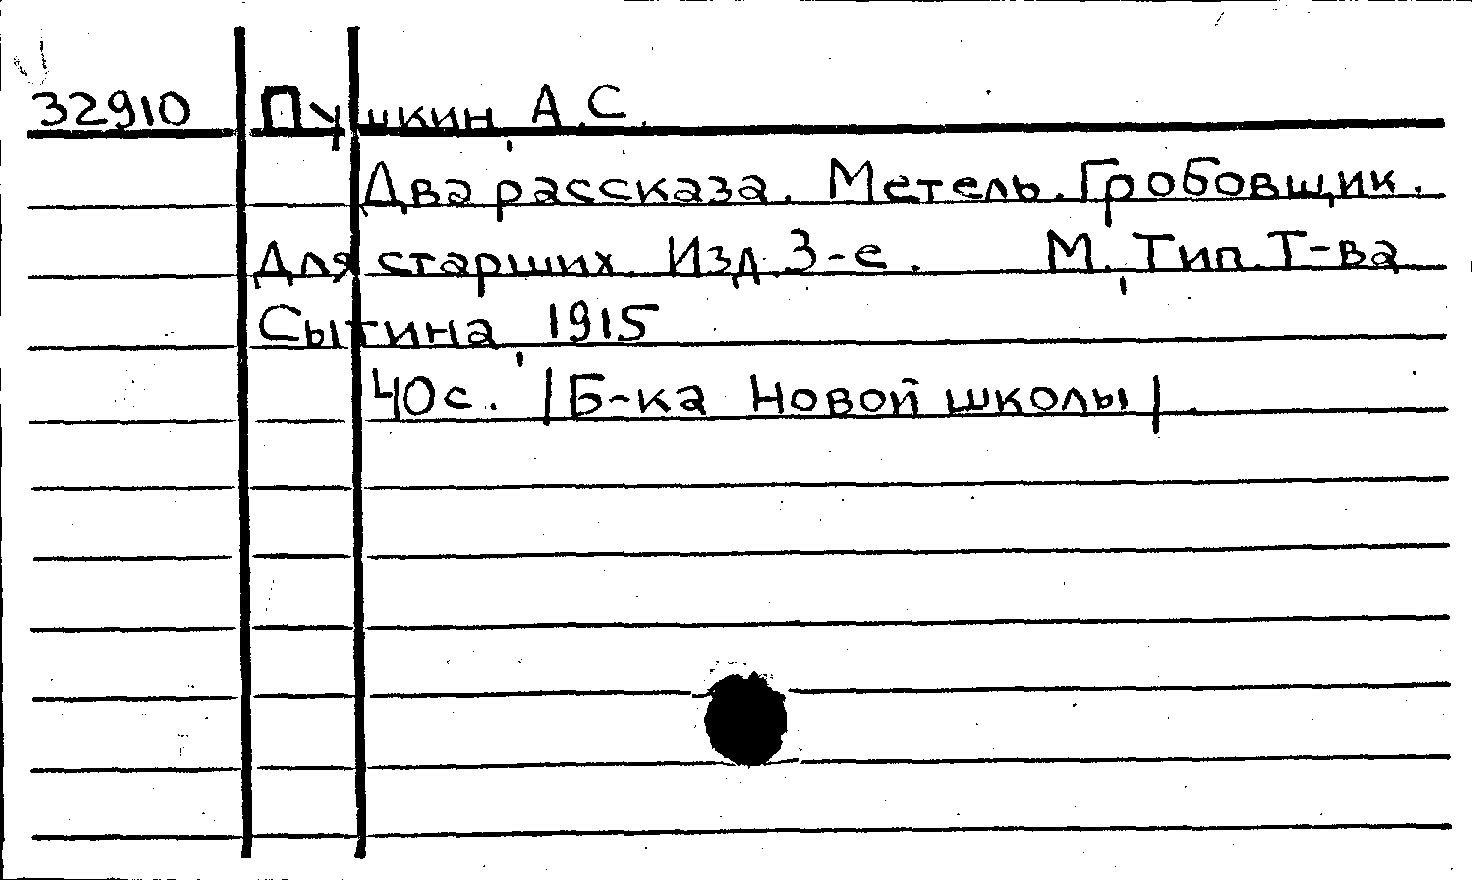 32910 Пушкин, А.С.
Два рассказа. Метель. Гробовщик.
Для старших. Изд. 3-е. М., Тип. Т-ва
Сытина, 1915
40 с. |Б-ка Новой школы|.